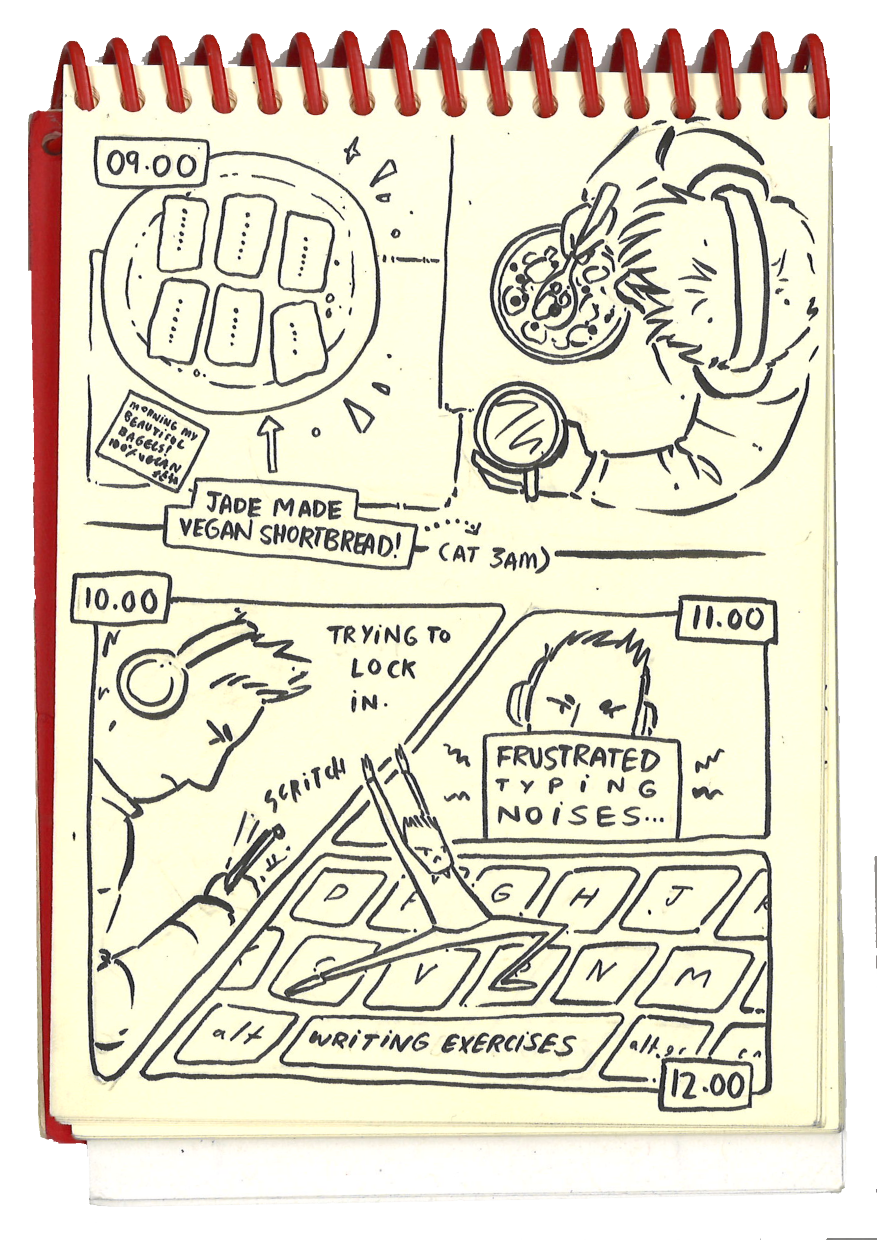 09.00
MORNING MY
BEAUTIFUL
BAGELS!
100% VEGAN
JADE MADE
VEGAN SHORTBREAD!
(AT 3AM)
10.00
TRYING TO
LOCK
IN.
SCRITCH
11.00
FRUSTRATED
TYPING
NOISES...
D F G H J K
C V B N M
alt WRITING EXERCISES alt gr
12.00